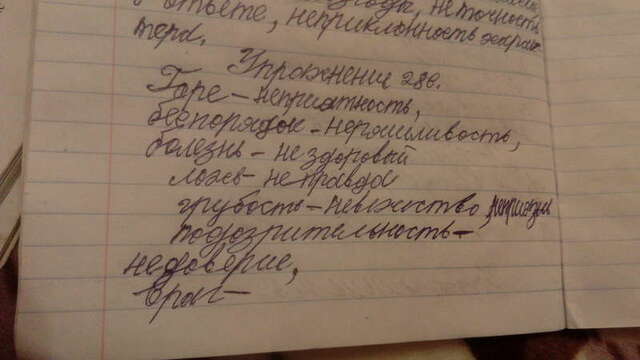 ответе, неприклонность харак
тера.
Упражнение 286.
Горе – неприятность,
беспорядок – неряшливость,
болезнь – не здоровый
ложь – не правда
грубость – невежество,
подозрительность –
недоверие,
враг –